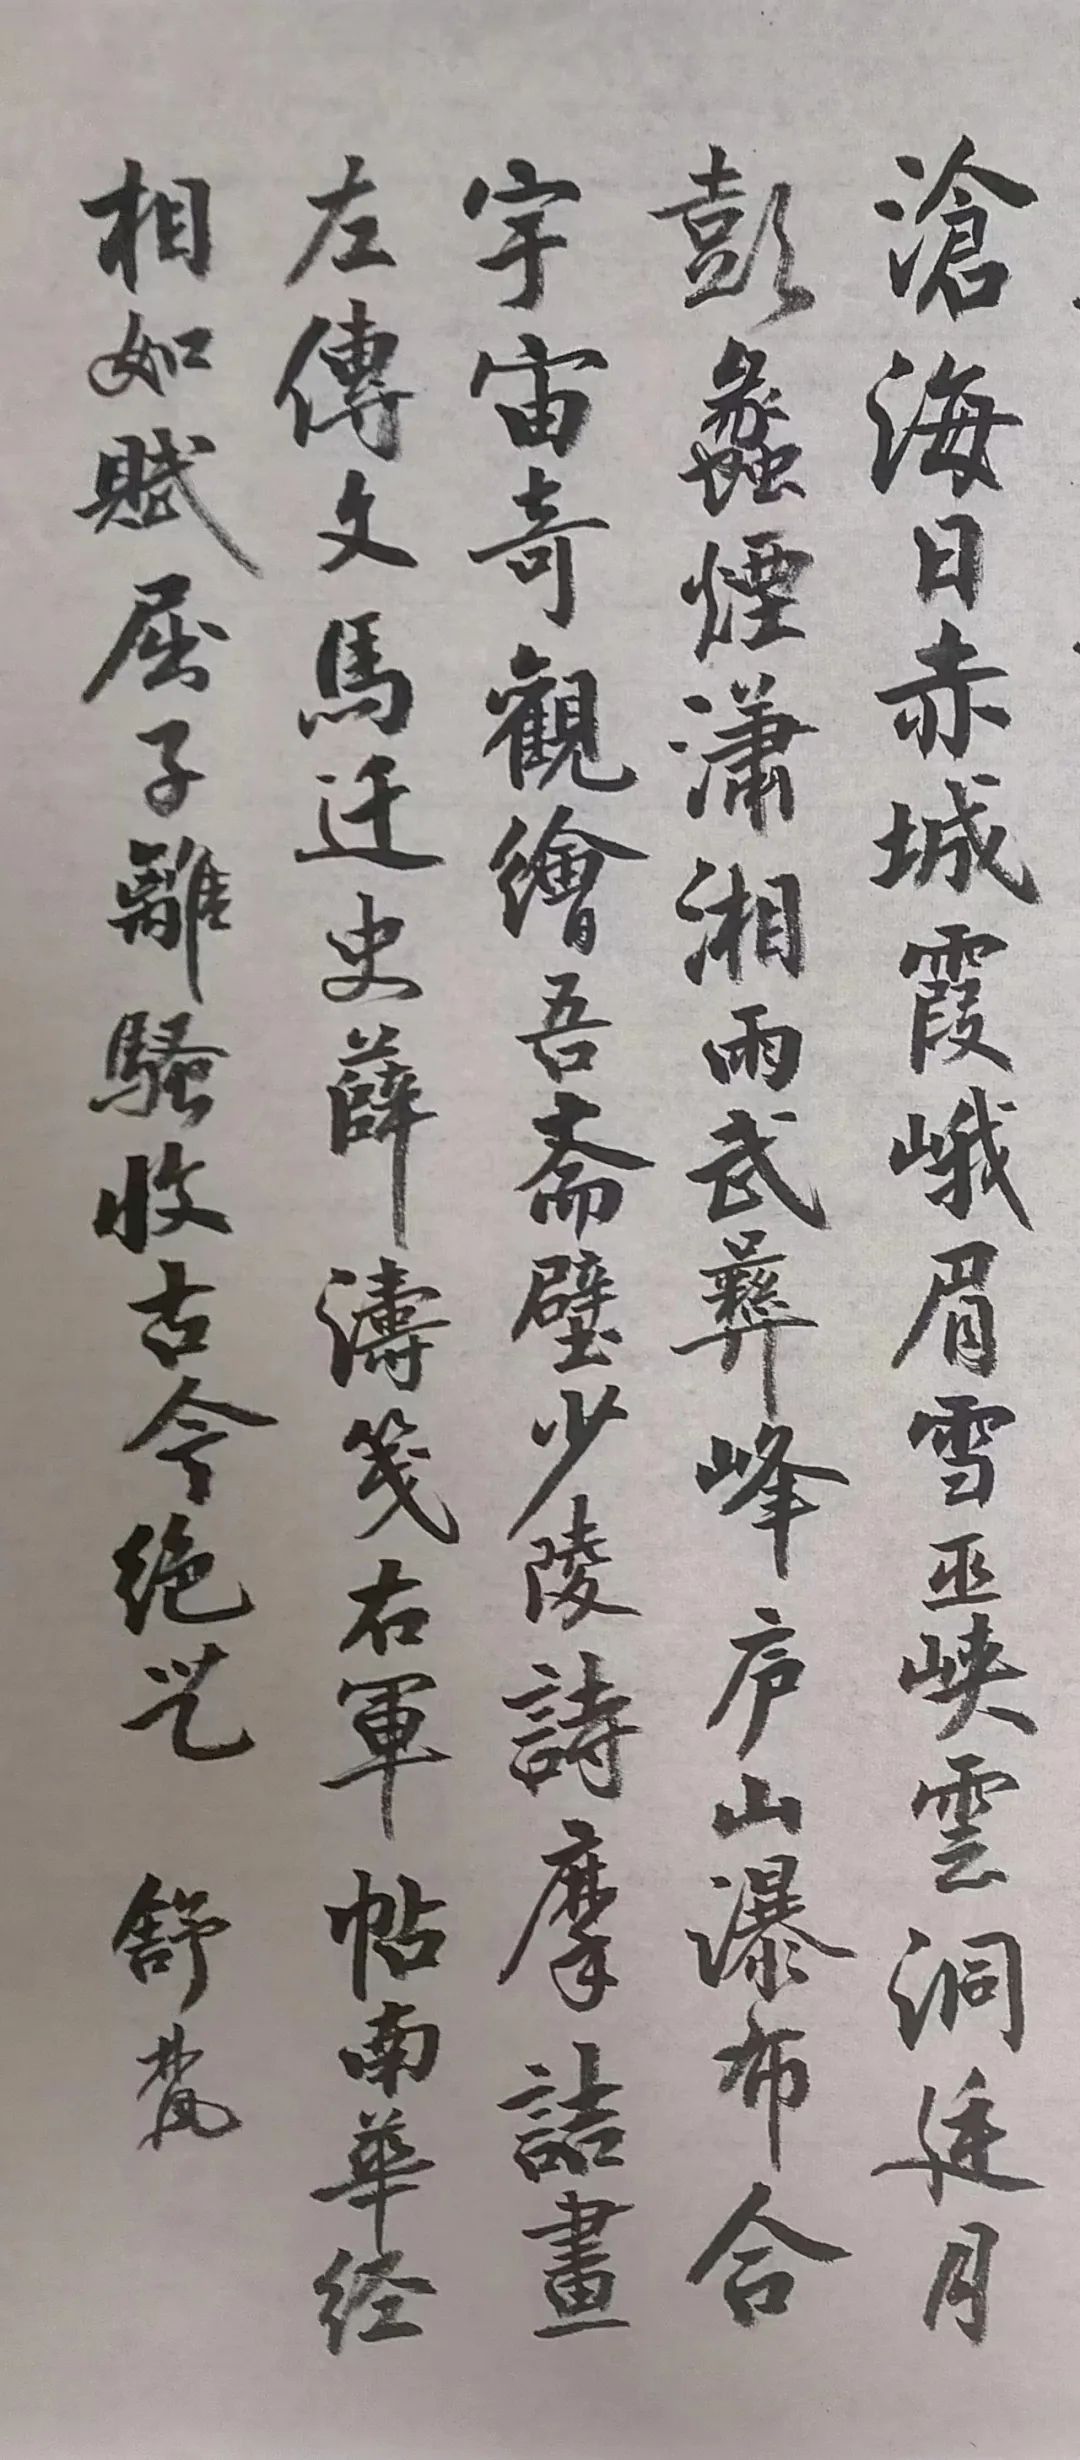 滄海日赤城霞峨眉雪巫峡雲洞廷月
彭蠡煙瀟湘雨武彝峰庐山瀑布合
宇宙奇觀繪吾斋壁少陵詩摩詰畫
左傳文馬迁史薛濤笺右軍帖南華经
相如賦屈子離騷收古今绝艺
舒